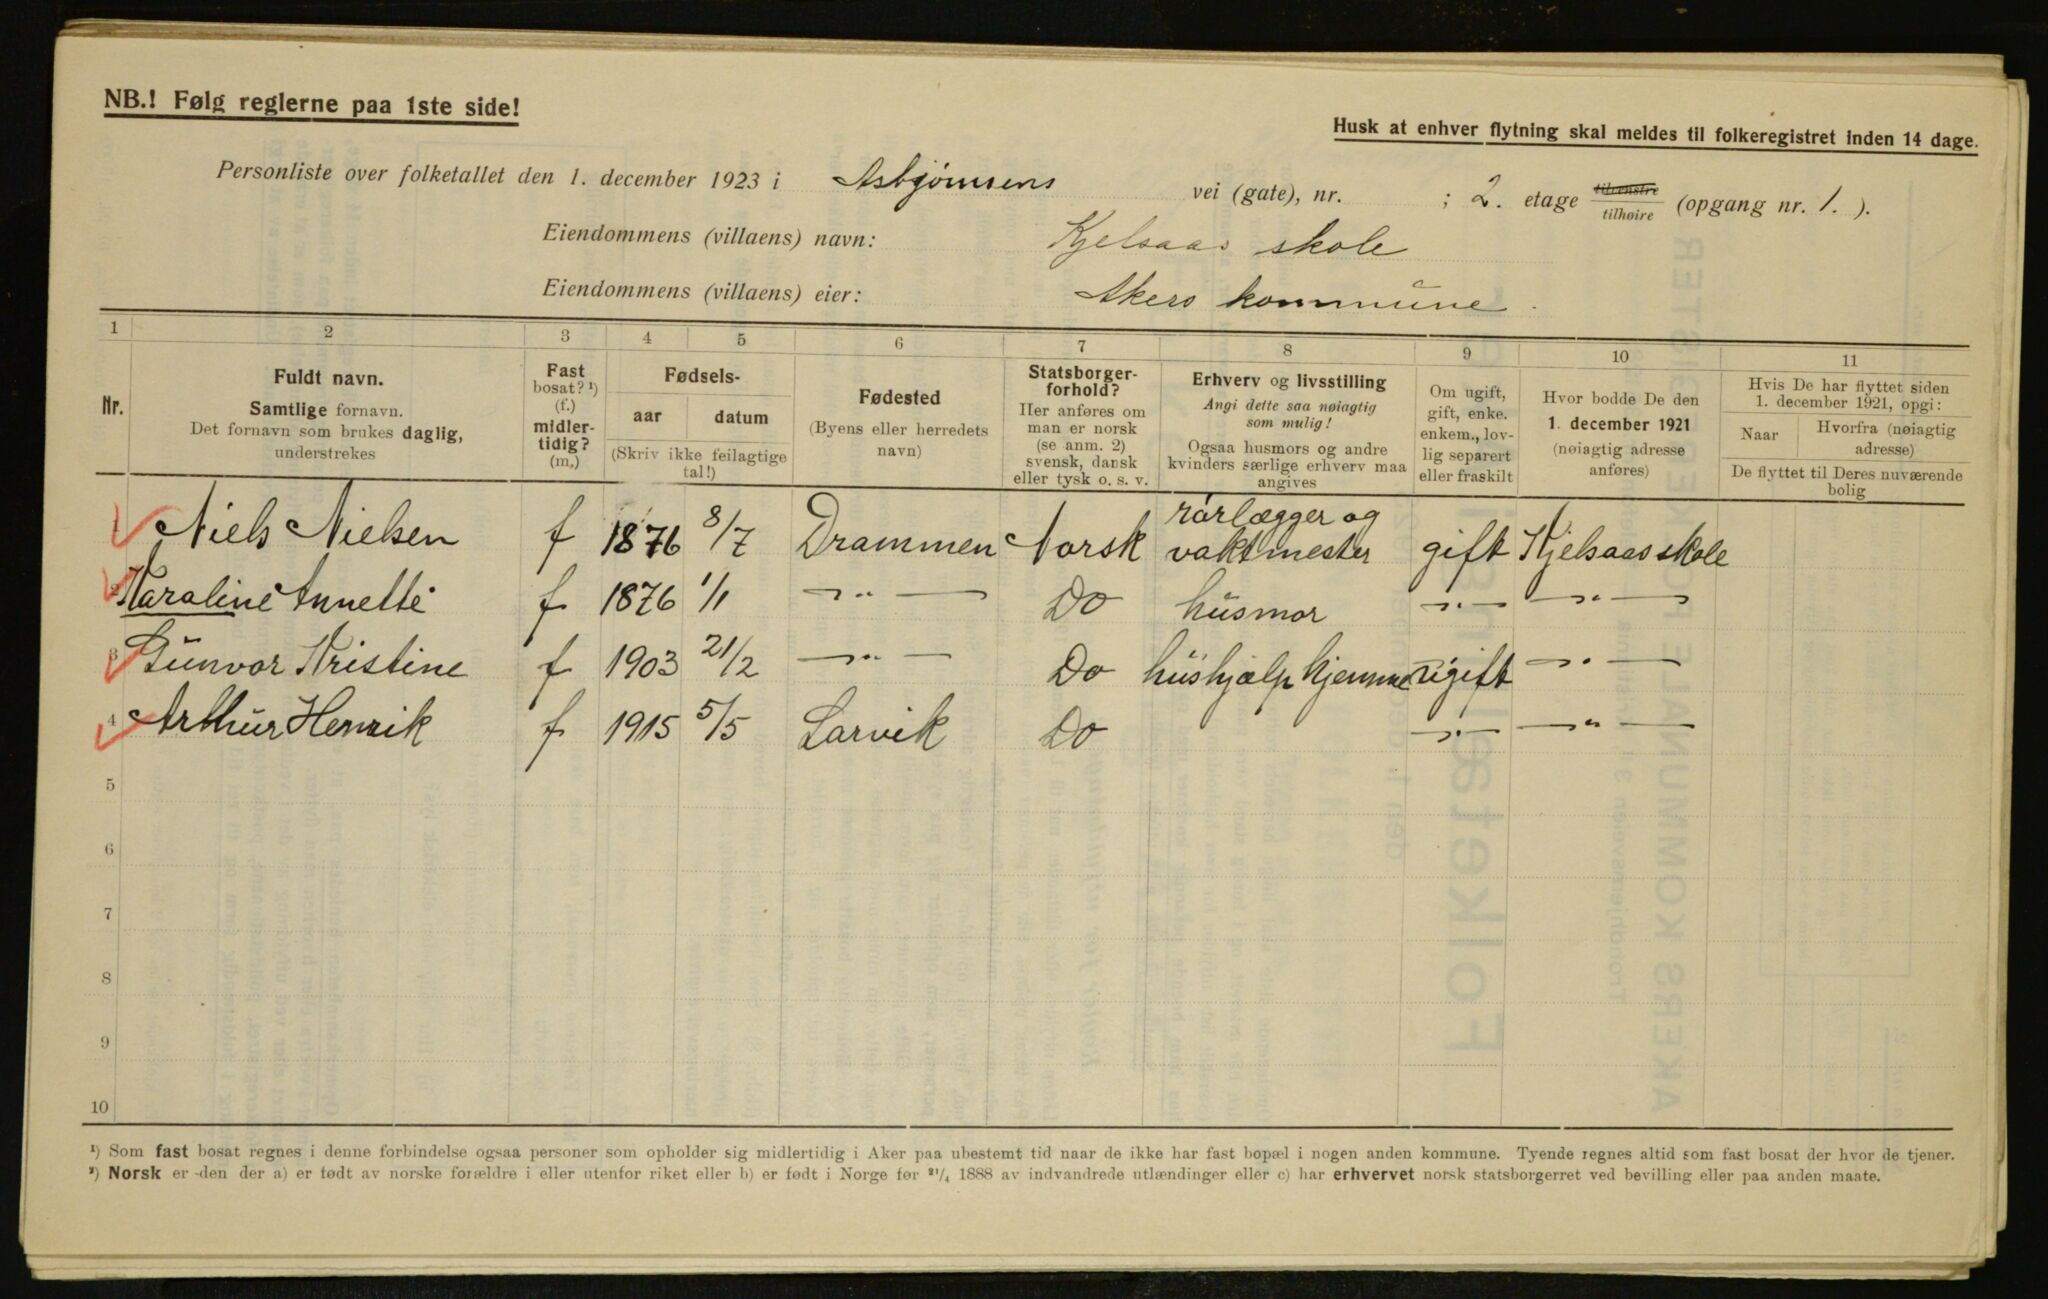 NB.! Følg reglerne paa 1ste side!
Husk at enhver flytning skal meldes til folkeregistret inden 14 dage.
Personliste over folketallet den 1. december 1923 i Asbjørnsens vei (gate), nr. ; 2. etage tilvenstre/tilhøire (opgang nr. 1. ).
Eiendommens (villaens) navn: Kjelsaas skole
Eiendommens (villaens) eier: Akers kommune
1 2 3 4 5 6 7 8 9 10 11
Nr.
Fuldt navn.
Samtlige fornavn.
Det fornavn som brukes daglig,
understrekes
Fast
bosat? ¹)
(f.)
midler-
tidig?
(m,)
Fødsels-
aar datum
(Skriv ikke feilagtige
tal!)
Fødested
(Byens eller herredets
navn)
Statsborger-
forhold?
Her anføres om
man er norsk
(se anm. 2)
svensk, dansk
eller tysk o. s. v.
Erhverv og livsstilling
Angi dette saa nøiagtig
som mulig!
Ogsaa husmors og andre
kvinders særlige erhverv maa
angives
Om ugift,
gift, enke.
enkem., lov-
lig separert
eller fraskilt
Hvor bodde De den
1. december 1921
(nøiagtig adresse
anføres)
Hvis De har flyttet siden
1. december 1921, opgi:
Naar
Hvorfra (nøiagtig
adresse)
De flyttet til Deres nuværende
bolig
1 Niels Nielsen f 1876 8/7 Drammen Norsk rørlægger og vaktmester gift Kjelsaas skole
2 Karaline Annette f 1876 1/1 —„— Do husmor —„— —„—
3 Gunvor Kristine f 1903 21/2 —„— Do hushjælp hjemme ugift —„—
4 Arthur Henrik f 1915 5/5 Larvik Do —„— —„—
5
6
7
8
9
10
¹) Som fast bosat regnes i denne forbindelse ogsaa personer som opholder sig midlertidig i Aker paa ubestemt tid naar de ikke har fast bopæl i nogen anden kommune. Tyende regnes altid som fast bosat der hvor de tjener.
²) Norsk er den der a) er født av norske forældre i eller utenfor riket eller b) er født i Norge før ²¹/₄ 1888 av indvandrede utlændinger eller c) har erhvervet norsk statsborgerret ved bevilling eller paa anden maate.